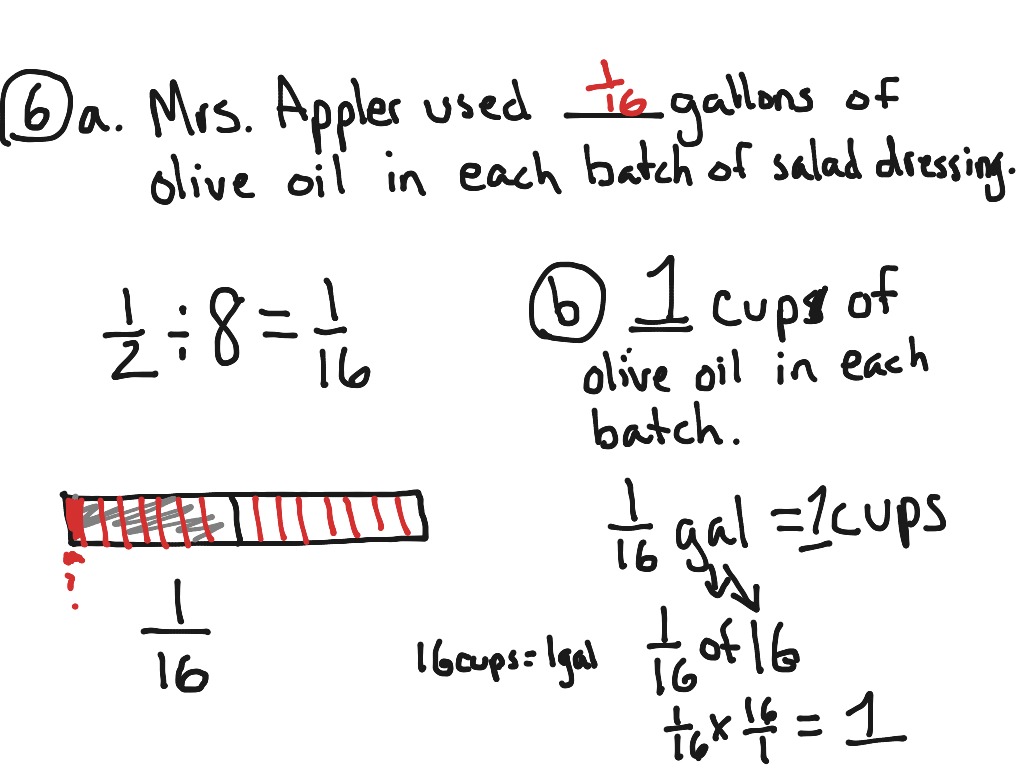 6 a. Mrs. Appler used 1/16 gallons of
olive oil in each batch of salad dressing.
1/2 ÷ 8 = 1/16
b 1 cups of
olive oil in each
batch.
?
1/16
1/16 gal = 1 cups
16 cups = 1 gal
1/16 of 16
1/16 x 16/1 = 1